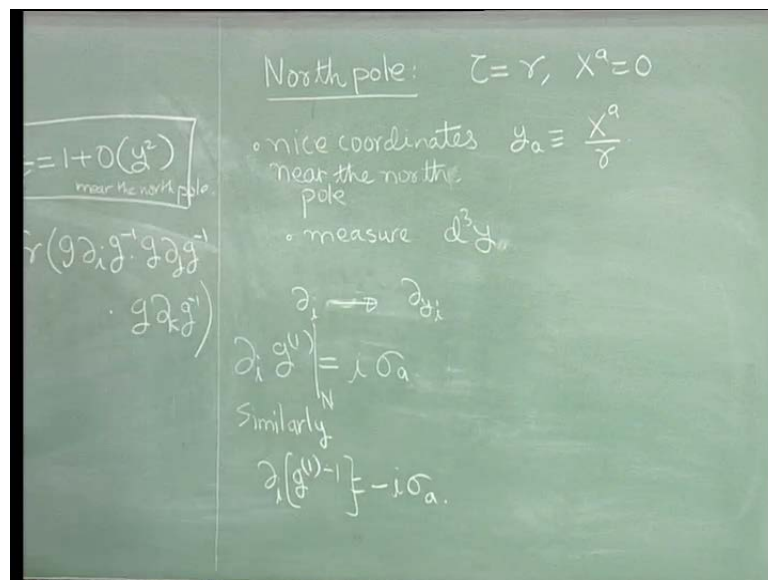 = 1 + O(y²)
near the north pole.
r(g∂ᵢg⁻¹ · g∂ⱼg⁻¹
· g∂ₖg⁻¹)
North pole: τ = r, Xᵃ = 0
• nice coordinates yₐ ≡ Xᵃ/r
near the north
pole
• measure d³y
∂ᵢ → ∂yᵢ
∂ᵢ g⁽¹⁾|_N = i σₐ
Similarly
∂ᵢ[g⁽¹⁾⁻¹] = −iσₐ.